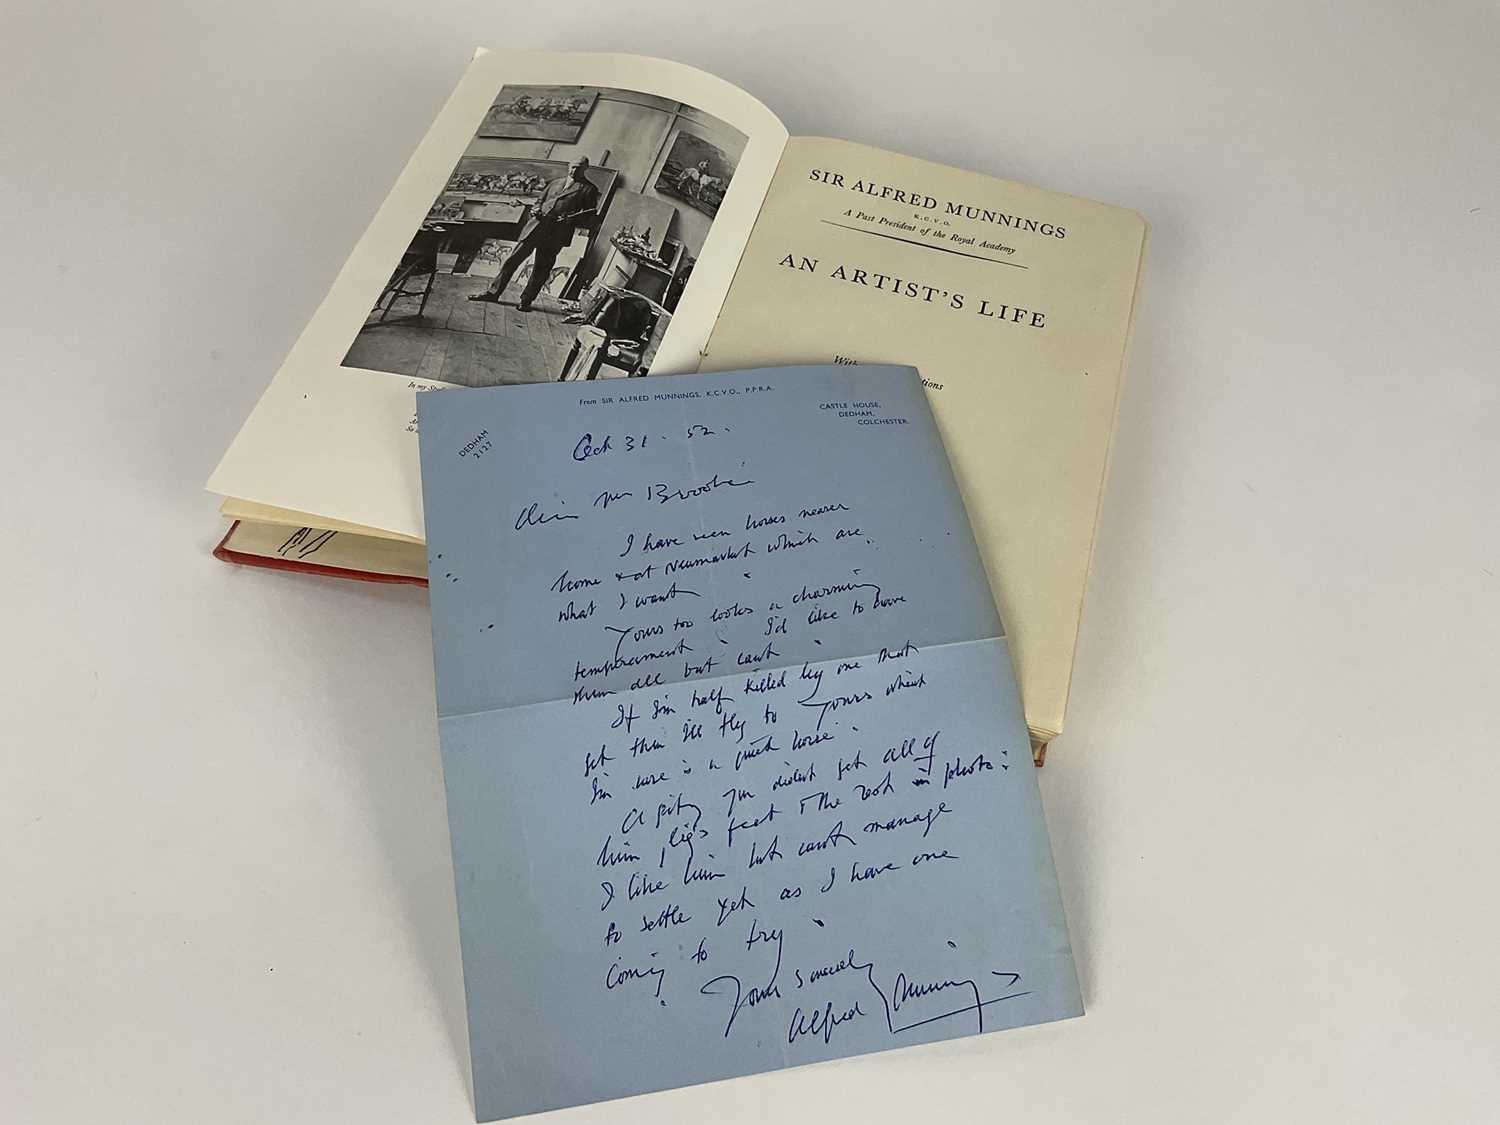 In my
SIR ALFRED MUNNINGS
K.C.V.O.
A Past President of the Royal Academy
AN ARTIST'S LIFE
With
From SIR ALFRED MUNNINGS, K.C.V.O., P.P.R.A.
DEDHAM
2127
CASTLE HOUSE,
DEDHAM,
COLCHESTER.
Oct 31. 52.
Dear Mr
I have seen horses nearer
home & at Newmarket which are
what I want
Yours too looks a charming
temperament I'd like to have
them all but cant
If I'm half killed by one that
I'll fly to Yours which
I'm sure is a quiet horse
A pity you didnt get all of
him, legs feet & the rest in photo:
I like him but cant manage
to settle yet as I have one
coming to try
Yours sincerely
Alfred Munnings